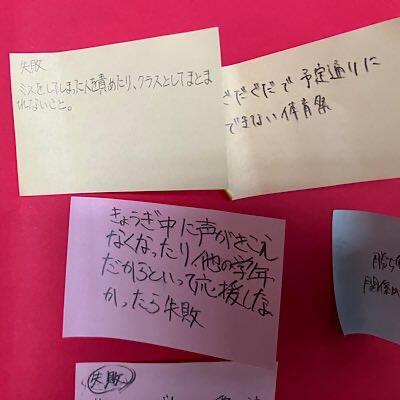 失敗
ミスをしてしまった人を責めたり、クラスとしてまとま
れないこと。
ぐだぐだで 予定通りに
できない体育祭
きょうぎ中に声がきこえ
なくなったり他の学年
だからといって応援しな
かったら失敗
勝ち
関係
失敗